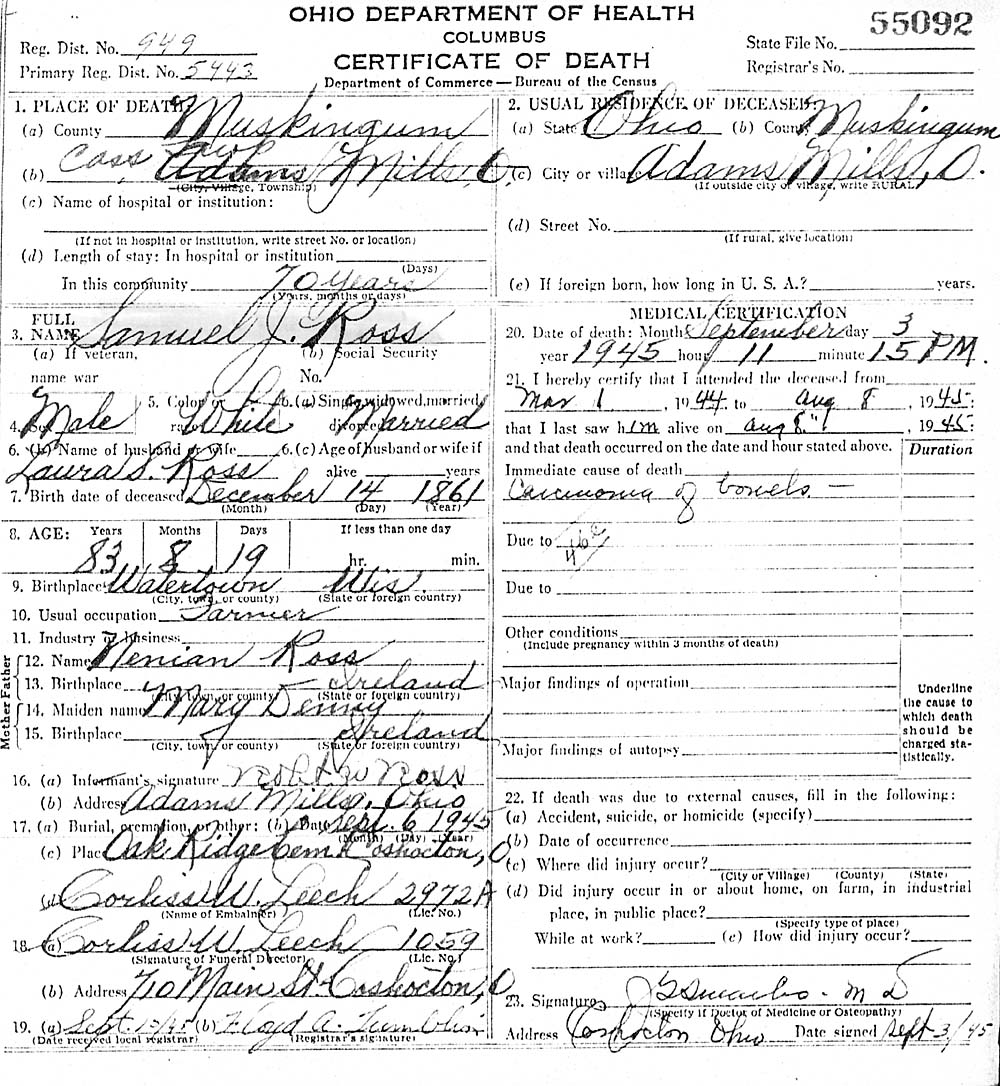 OHIO DEPARTMENT OF HEALTH
COLUMBUS
CERTIFICATE OF DEATH
Department of Commerce — Bureau of the Census
Reg. Dist. No. 949
Primary Reg. Dist. No. 5443
55092
State File No.
Registrar's No.
1. PLACE OF DEATH
(a) County Muskingum
(b) Cass Twp Adams Mills, O.
(City, Village, Township)
(c) Name of hospital or institution:
(If not in hospital or institution, write street No. or location)
(d) Length of stay: In hospital or institution
(Days)
In this community 70 years
(Years, months or days)
2. USUAL RESIDENCE OF DECEASED:
(a) State Ohio (b) County Muskingum
(c) City or village Adams Mills, O.
(If outside city or village, write RURAL)
(d) Street No.
(If rural, give location)
(e) If foreign born, how long in U. S. A.? years.
3. FULL NAME Samuel J. Ross
(a) If veteran, name war
(b) Social Security No.
4. Sex Male 5. Color or race White 6. (a) Single, widowed, married, divorced Married
6. (b) Name of husband or wife Laura S. Ross 6. (c) Age of husband or wife if alive years
7. Birth date of deceased December 14 1861
(Month) (Day) (Year)
8. AGE: Years 83 Months 8 Days 19 If less than one day hr. min.
9. Birthplace Watertown Wis.
(City, town, or county) (State or foreign country)
10. Usual occupation Farmer
11. Industry or business
Father
12. Name Nenian Ross
13. Birthplace Ireland
(City, town, or county) (State or foreign country)
Mother
14. Maiden name Mary Denny
15. Birthplace Ireland
(City, town, or county) (State or foreign country)
16. (a) Informant's signature Robt W Ross
(b) Address Adams Mills, Ohio
17. (a) Burial, cremation, or other: (b) Date Sept. 6 1945
(Month) (Day) (Year)
(c) Place Oak Ridge Cem. Coshocton, O
(d) Corliss W. Leech 2972A
(Name of Embalmer) (Lic. No.)
18. (a) Corliss W. Leech 1059
(Signature of Funeral Director) (Lic. No.)
(b) Address 710 Main St. Coshocton, O
19. (a) Sept (b) Floyd A.
(Date received local registrar) (Registrar's signature)
MEDICAL CERTIFICATION
20. Date of death: Month September day 3
year 1945 hour 11 minute 15 P.M.
21. I hereby certify that I attended the deceased from
Mar 1, 1944, to Aug 8, 1945;
that I last saw him alive on Aug 8", 1945;
and that death occurred on the date and hour stated above.
Duration
Immediate cause of death
Carcinoma of bowels —
Due to 46e
Due to
Other conditions
(Include pregnancy within 3 months of death)
Major findings of operation
Major findings of autopsy
Underline the cause to which death should be charged statistically.
22. If death was due to external causes, fill in the following:
(a) Accident, suicide, or homicide (specify)
(b) Date of occurrence
(c) Where did injury occur?
(City or Village) (County) (State)
(d) Did injury occur in or about home, on farm, in industrial
place, in public place?
(Specify type of place)
While at work? (e) How did injury occur?
23. Signature M D
(Specify if Doctor of Medicine or Osteopathy)
Address Coshocton Ohio Date signed Sept 3/45